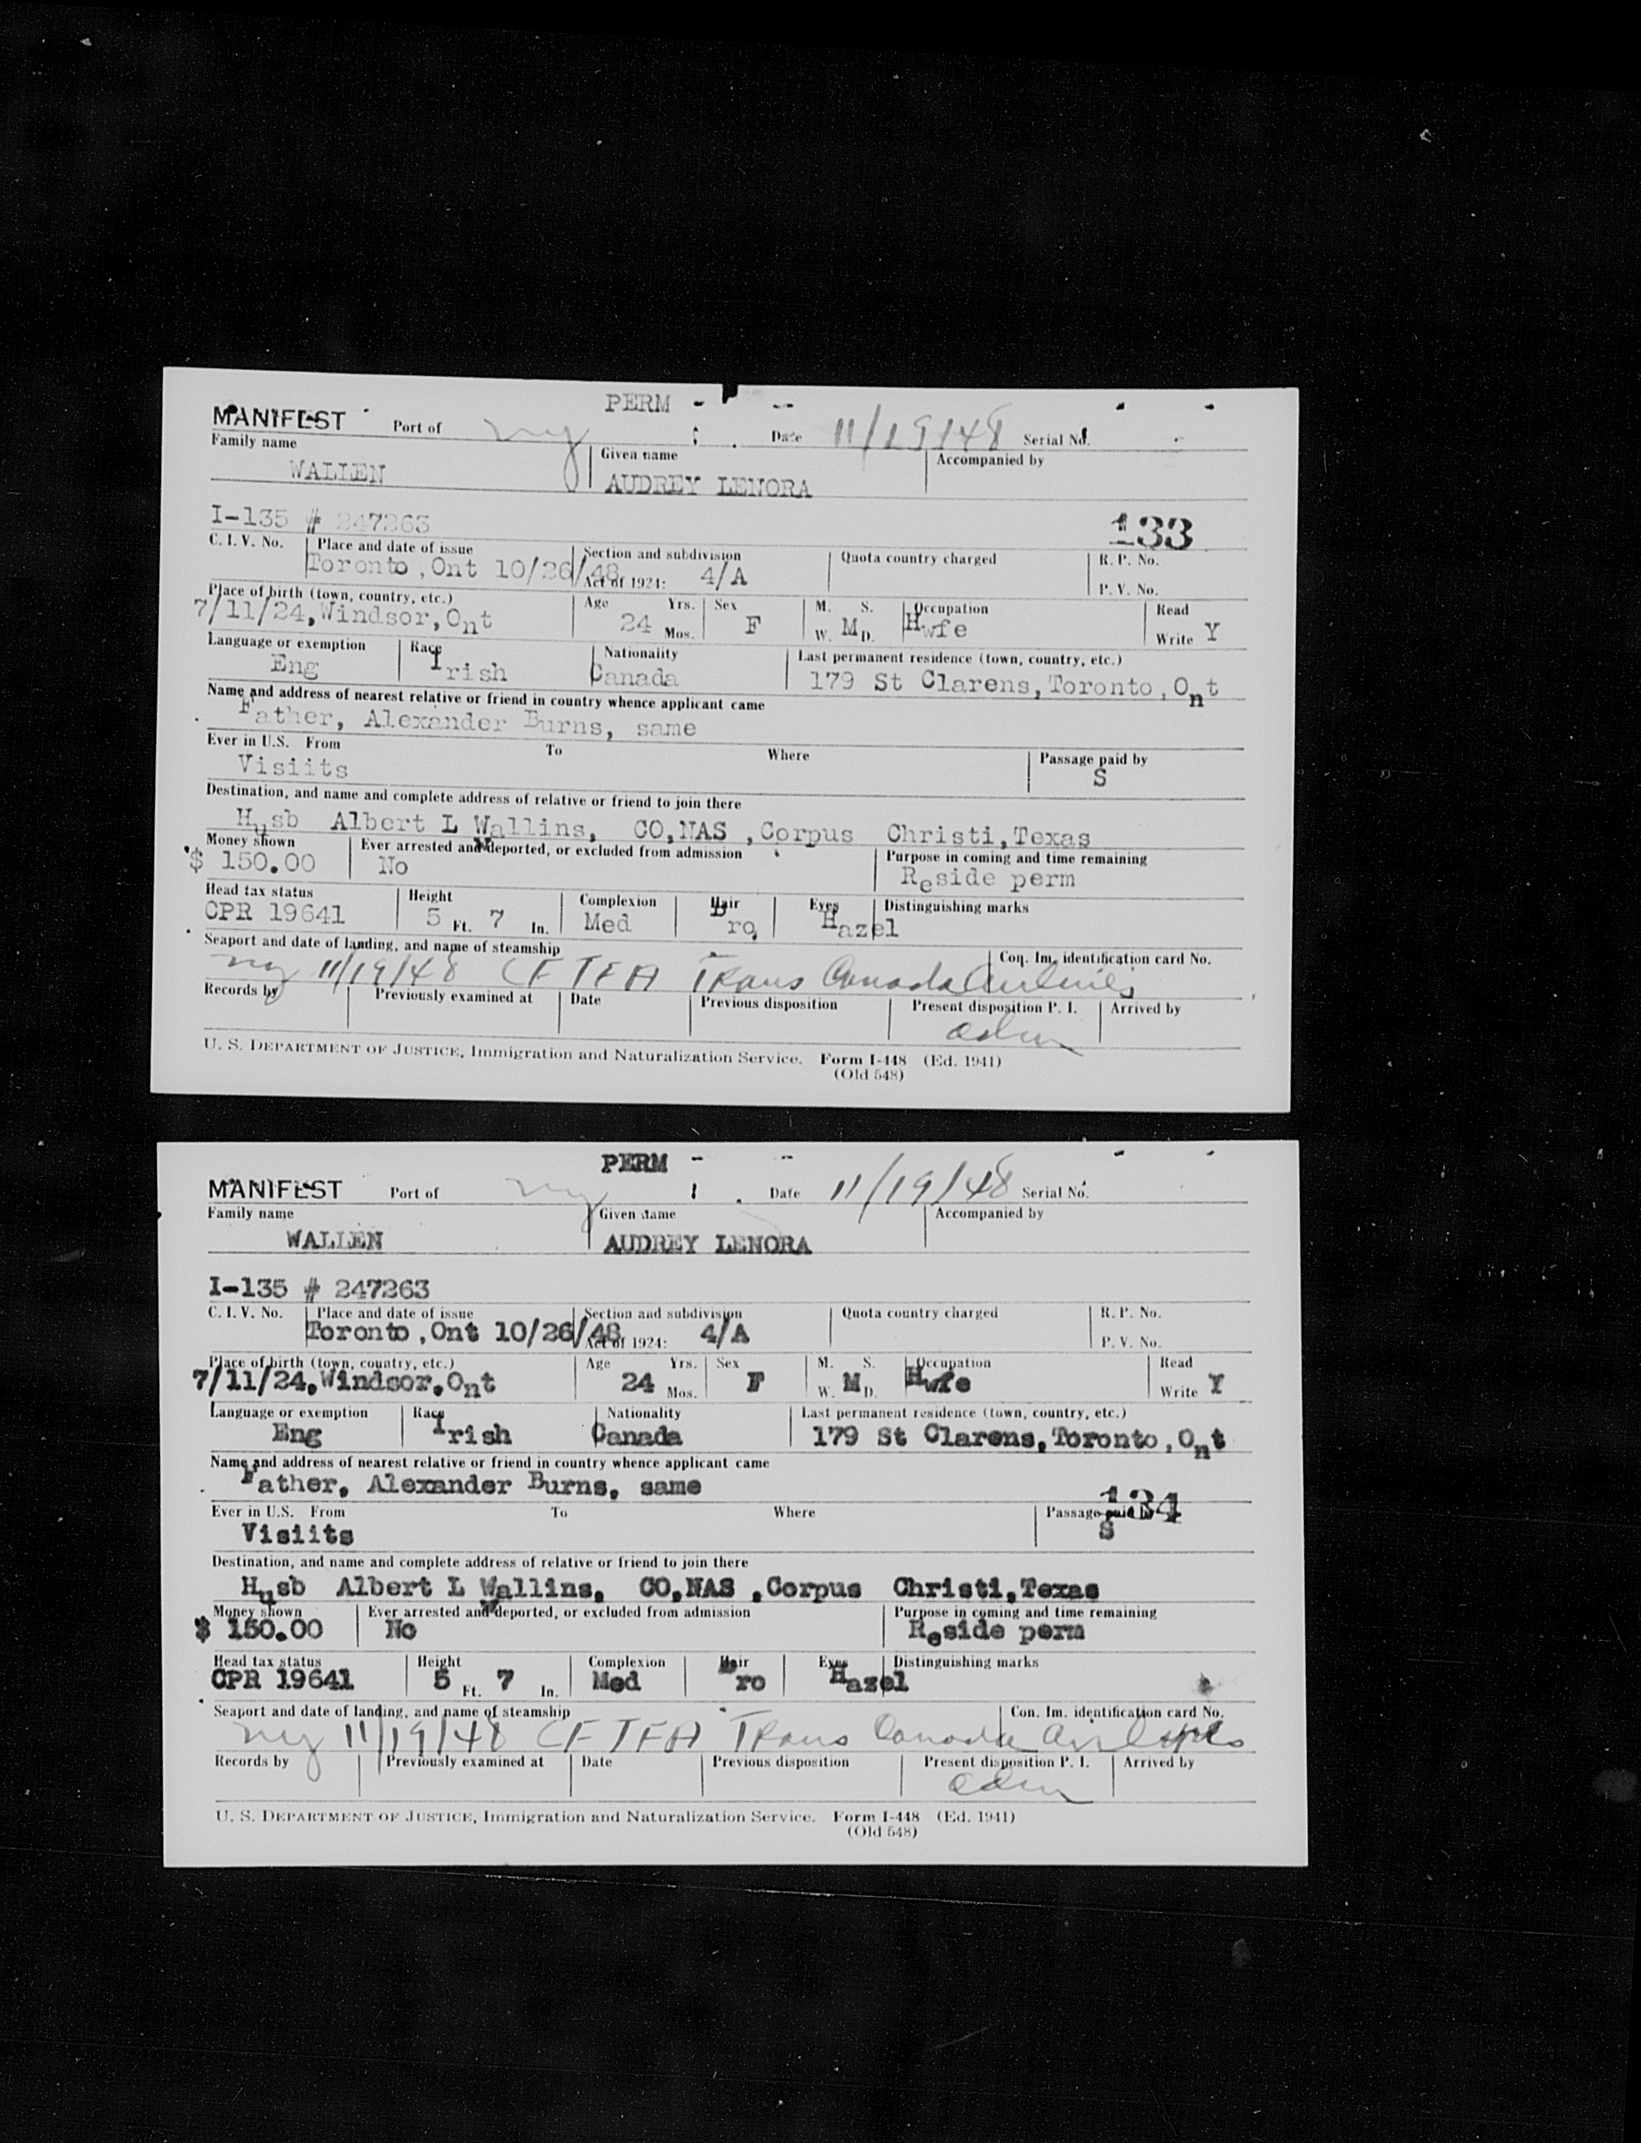 PERM - --
MANIFEST Port of ny Date 11/19/48 Serial No.
Family name Given name Accompanied by
WALLEN AUDREY LENORA
I-135 # 247263 133
C. I. V. No. Place and date of issue Section and subdivision Quota country charged R. P. No.
Toronto ,Ont 10/26/48 Act of 1924: 4/A P. V. No.
Place of birth (town, country, etc.) Age Yrs. Sex M. S. Occupation Read
7/11/24,Windsor,Ont 24 Mos. F W. M D. Hwfe Write Y
Language or exemption Race Nationality Last permanent residence (town, country, etc.)
Eng Irish Canada 179 St Clarens,Toronto,Ont
Name and address of nearest relative or friend in country whence applicant came
Father, Alexander Burns, same
Ever in U.S. From To Where Passage paid by
Visiits S
Destination, and name and complete address of relative or friend to join there
Husb Albert L Wallins, CO,NAS ,Corpus Christi,Texas
Money shown Ever arrested and deported, or excluded from admission Purpose in coming and time remaining
$ 150.00 No Reside perm
Head tax status Height Complexion Hair Eyes Distinguishing marks
CPR 19641 5 Ft. 7 In. Med Bro Hazel
Seaport and date of landing, and name of steamship Con. Im. identification card No.
ny 11/19/48 CF TEA Trans Canada Airlines
Records by Previously examined at Date Previous disposition Present disposition P. I. Arrived by
adm
U. S. DEPARTMENT OF JUSTICE, Immigration and Naturalization Service. Form I-448 (Ed. 1941)
(Old 548)
PERM - --
MANIFEST Port of ny Date 11/19/48 Serial No.
Family name Given name Accompanied by
WALLEN AUDREY LENORA
I-135 # 247263
C. I. V. No. Place and date of issue Section and subdivision Quota country charged R. P. No.
Toronto ,Ont 10/26/48 Act of 1924: 4/A P. V. No.
Place of birth (town, country, etc.) Age Yrs. Sex M. S. Occupation Read
7/11/24,Windsor,Ont 24 Mos. F W. M D. Hwfe Write Y
Language or exemption Race Nationality Last permanent residence (town, country, etc.)
Eng Irish Canada 179 St Clarens,Toronto,Ont
Name and address of nearest relative or friend in country whence applicant came
Father, Alexander Burns, same
134
Ever in U.S. From To Where Passage paid by
Visiits S
Destination, and name and complete address of relative or friend to join there
Husb Albert L Wallins, CO,NAS ,Corpus Christi,Texas
Money shown Ever arrested and deported, or excluded from admission Purpose in coming and time remaining
$ 150.00 No Reside perm
Head tax status Height Complexion Hair Eyes Distinguishing marks
CPR 19641 5 Ft. 7 In. Med Bro Hazel
Seaport and date of landing, and name of steamship Con. Im. identification card No.
ny 11/19/48 CF TFA Trans Canada Airlines
Records by Previously examined at Date Previous disposition Present disposition P. I. Arrived by
adm
U. S. DEPARTMENT OF JUSTICE, Immigration and Naturalization Service. Form I-448 (Ed. 1941)
(Old 548)